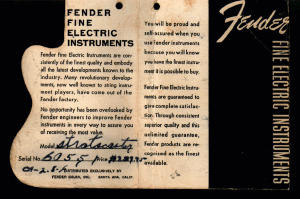 FENDER
FINE
ELECTRIC
INSTRUMENTS
Fender Fine Electric Instruments are con-
sistently of the finest quality and embody
all the latest developments known to the
industry. Many revolutionary develop-
ments, now well known to string instru-
ment players, have come out of the
Fender factory.
No opportunity has been overlooked by
Fender engineers to improve Fender
instruments in every way to assure you
of receiving the most value.
Model Stratocaster
Serial No. Price
DISTRIBUTED EXCLUSIVELY BY
FENDER SALES, INC. SANTA ANA, CALIF.
You will be proud and
self-assured when you
use Fender instruments
because you will know
you have the finest instru-
ment it is possible to buy.
Fender Fine Electric Instru-
ments are guaranteed to
give complete satisfac-
tion. Through consistent
superior quality and this
unlimited guarantee,
Fender products are re-
cognized as the finest
available.
Fender
FINE ELECTRIC INSTRUMENTS